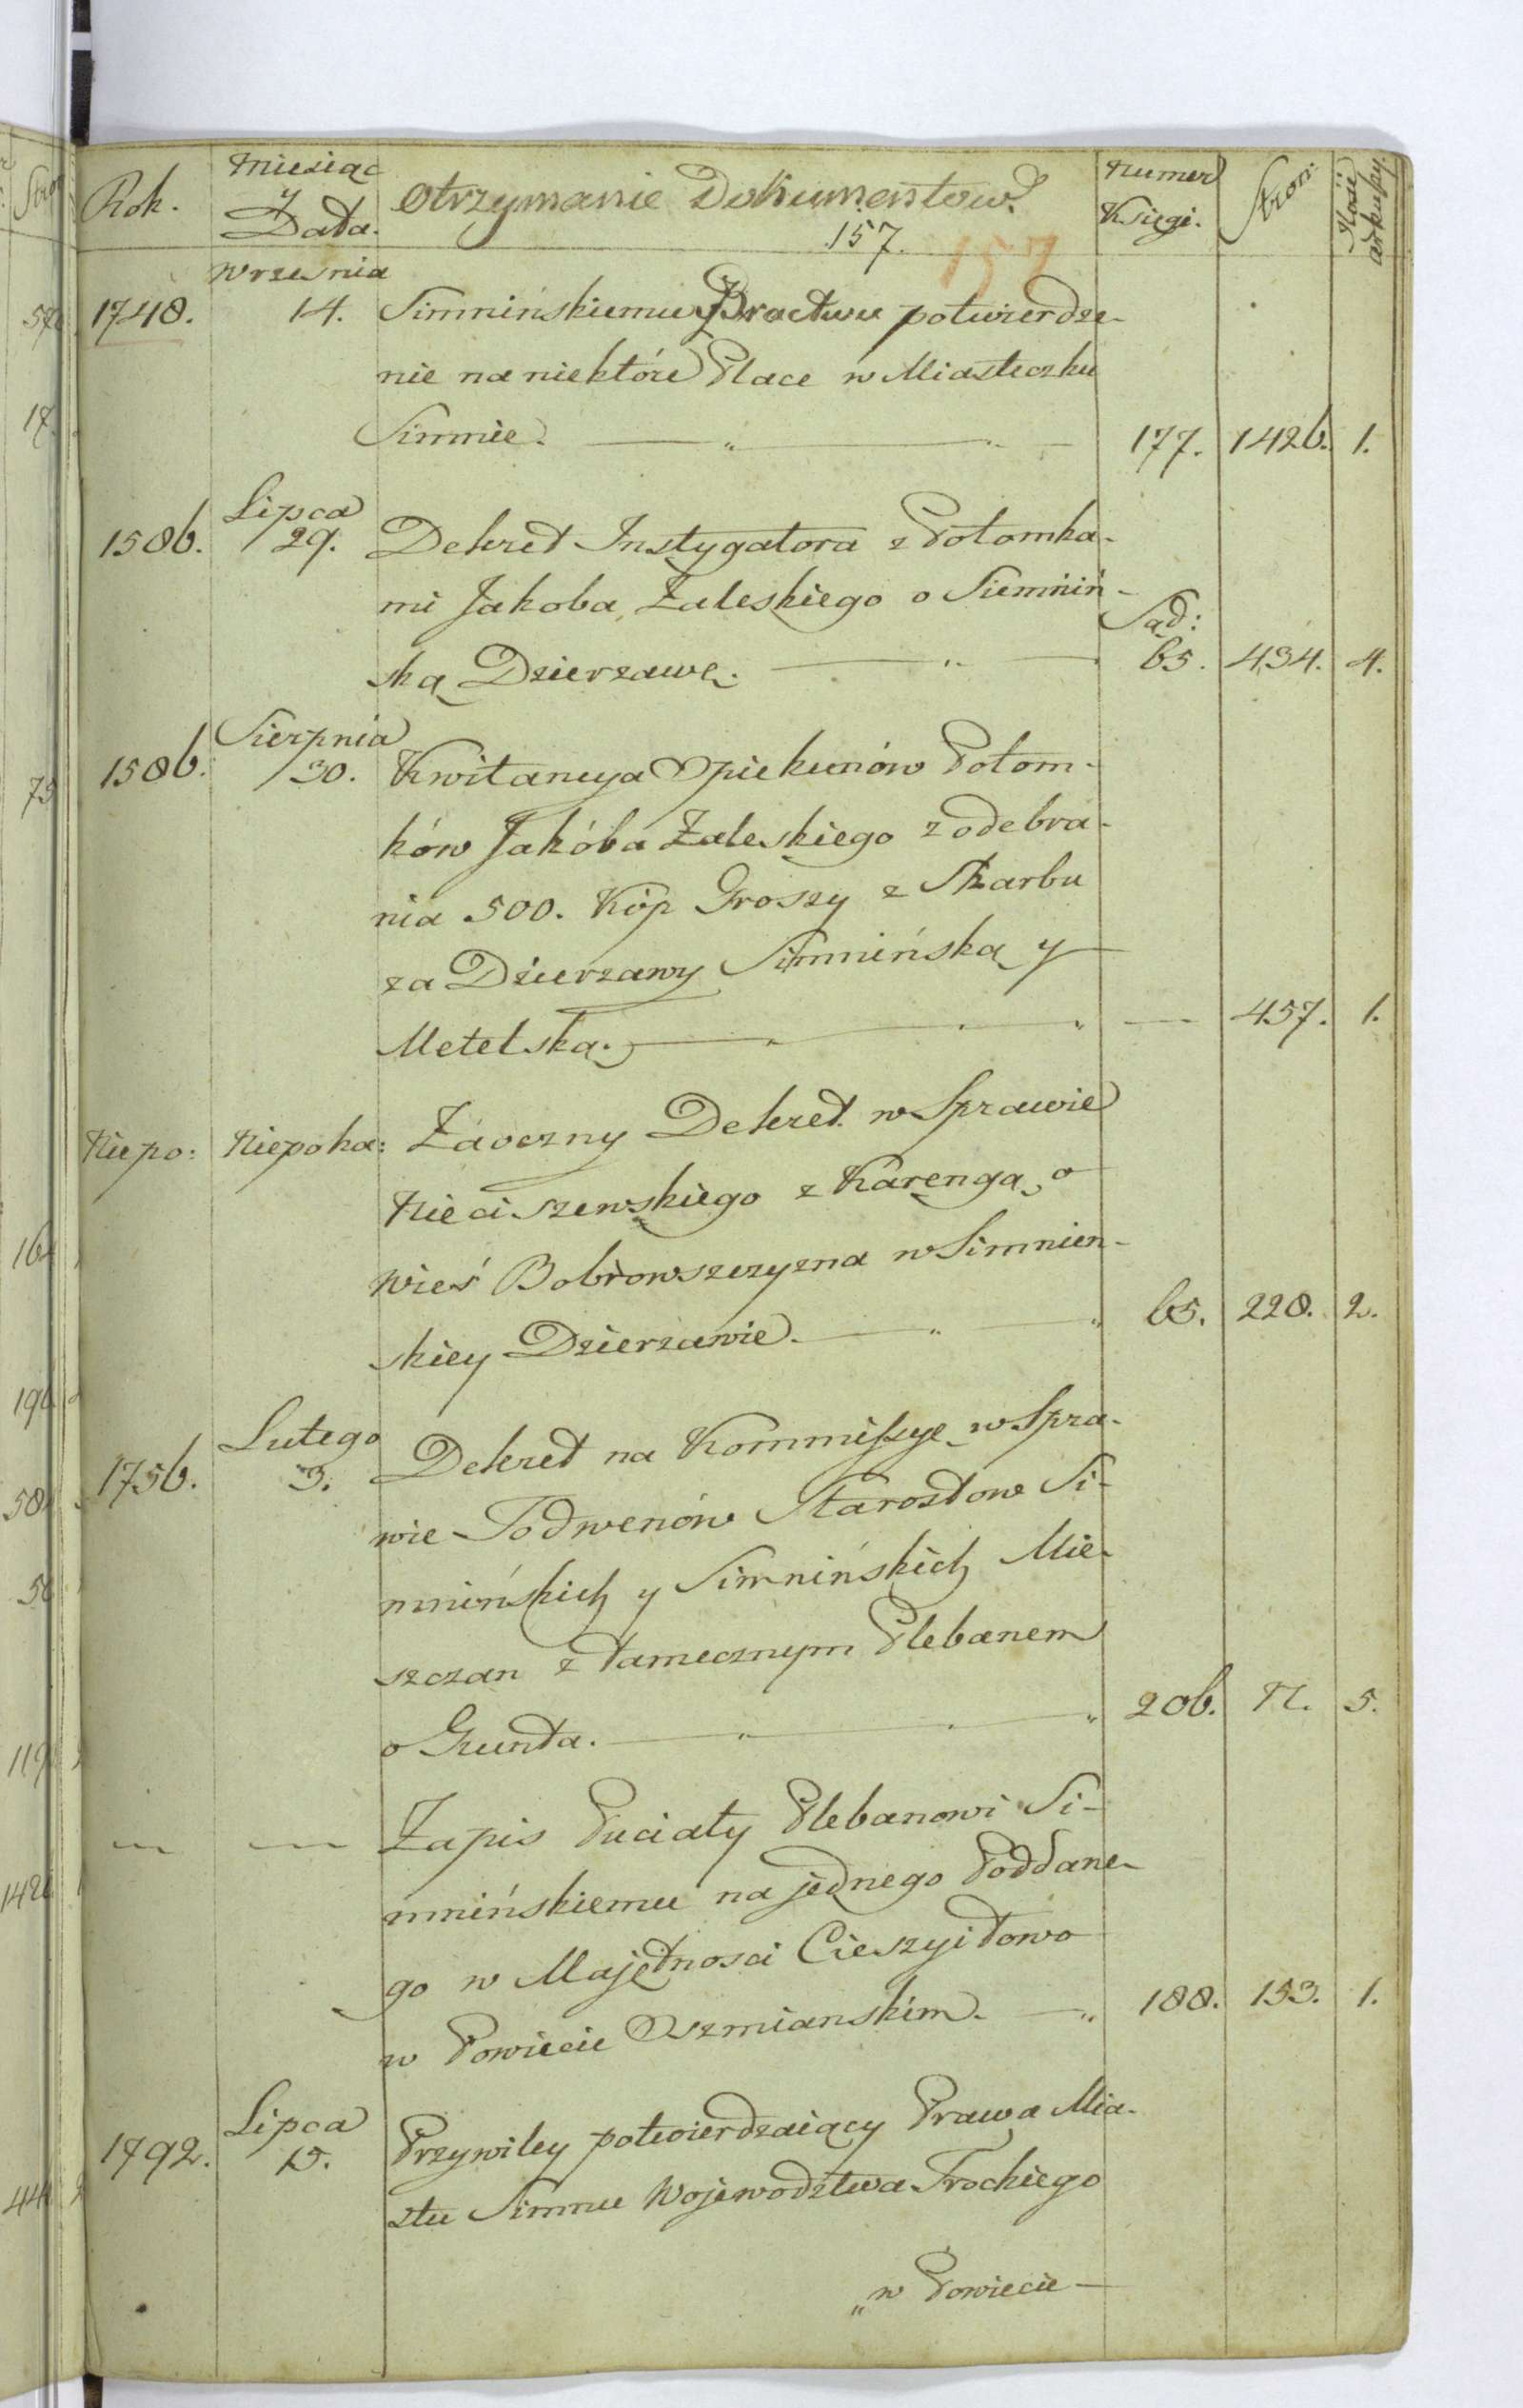 Rok. Miesiąc y Data. Otrzymanie Dokumentow. Numer Księgi. Stron: Ilość arkuszy.
157. 157
Wrzesnia
1748. 14. Simnińskiemu Bractwu potwierdze-
nie na niektóre Place w Miasteczku
Simnie. 177. 1426. 1.
Lipca
1586. 29. Dekret Instygatora z Potomka-
mi Jakoba Zaleskiego o Siemniń-
ską Dzierzawę. Sąd: 65. 434. 4.
Sierpnia
1586. 30. Kwitancya Opiekunów Potom-
ków Jakóba Zaleskiego z odebra-
nia 500. Kóp Groszy z Skarbu
za Dzierzawy Simnińską y
Metelską. — 457. 1.
Niepo: Niepoka: Zaoczny Dekret w Sprawie
Nieciszewskiego z Karengą o
Wieś Bobrowszczyzna w Simnien-
skiey Dzierzawie. 65. 228. 2.
Lutego
1756. 3. Dekret na Kommissyę w Spra-
wie Todwenów Starostow Si-
mnińskich y Simnińskich Mie-
szczan z tamecznym Plebanem
o Grunta. 206. 5.
— — Zapis Puciaty Plebanowi Si-
mnińskiemu na jednego Poddane-
go w Majętnosci Cieszyiłowo
w Powiecie Oszmianskim. 188. 153. 1.
Lipca
1792. 15. Przywiley potwierdzaiący Prawa Mia-
stu Simnu Wojewodztwa Trockiego
„w Powiecie —